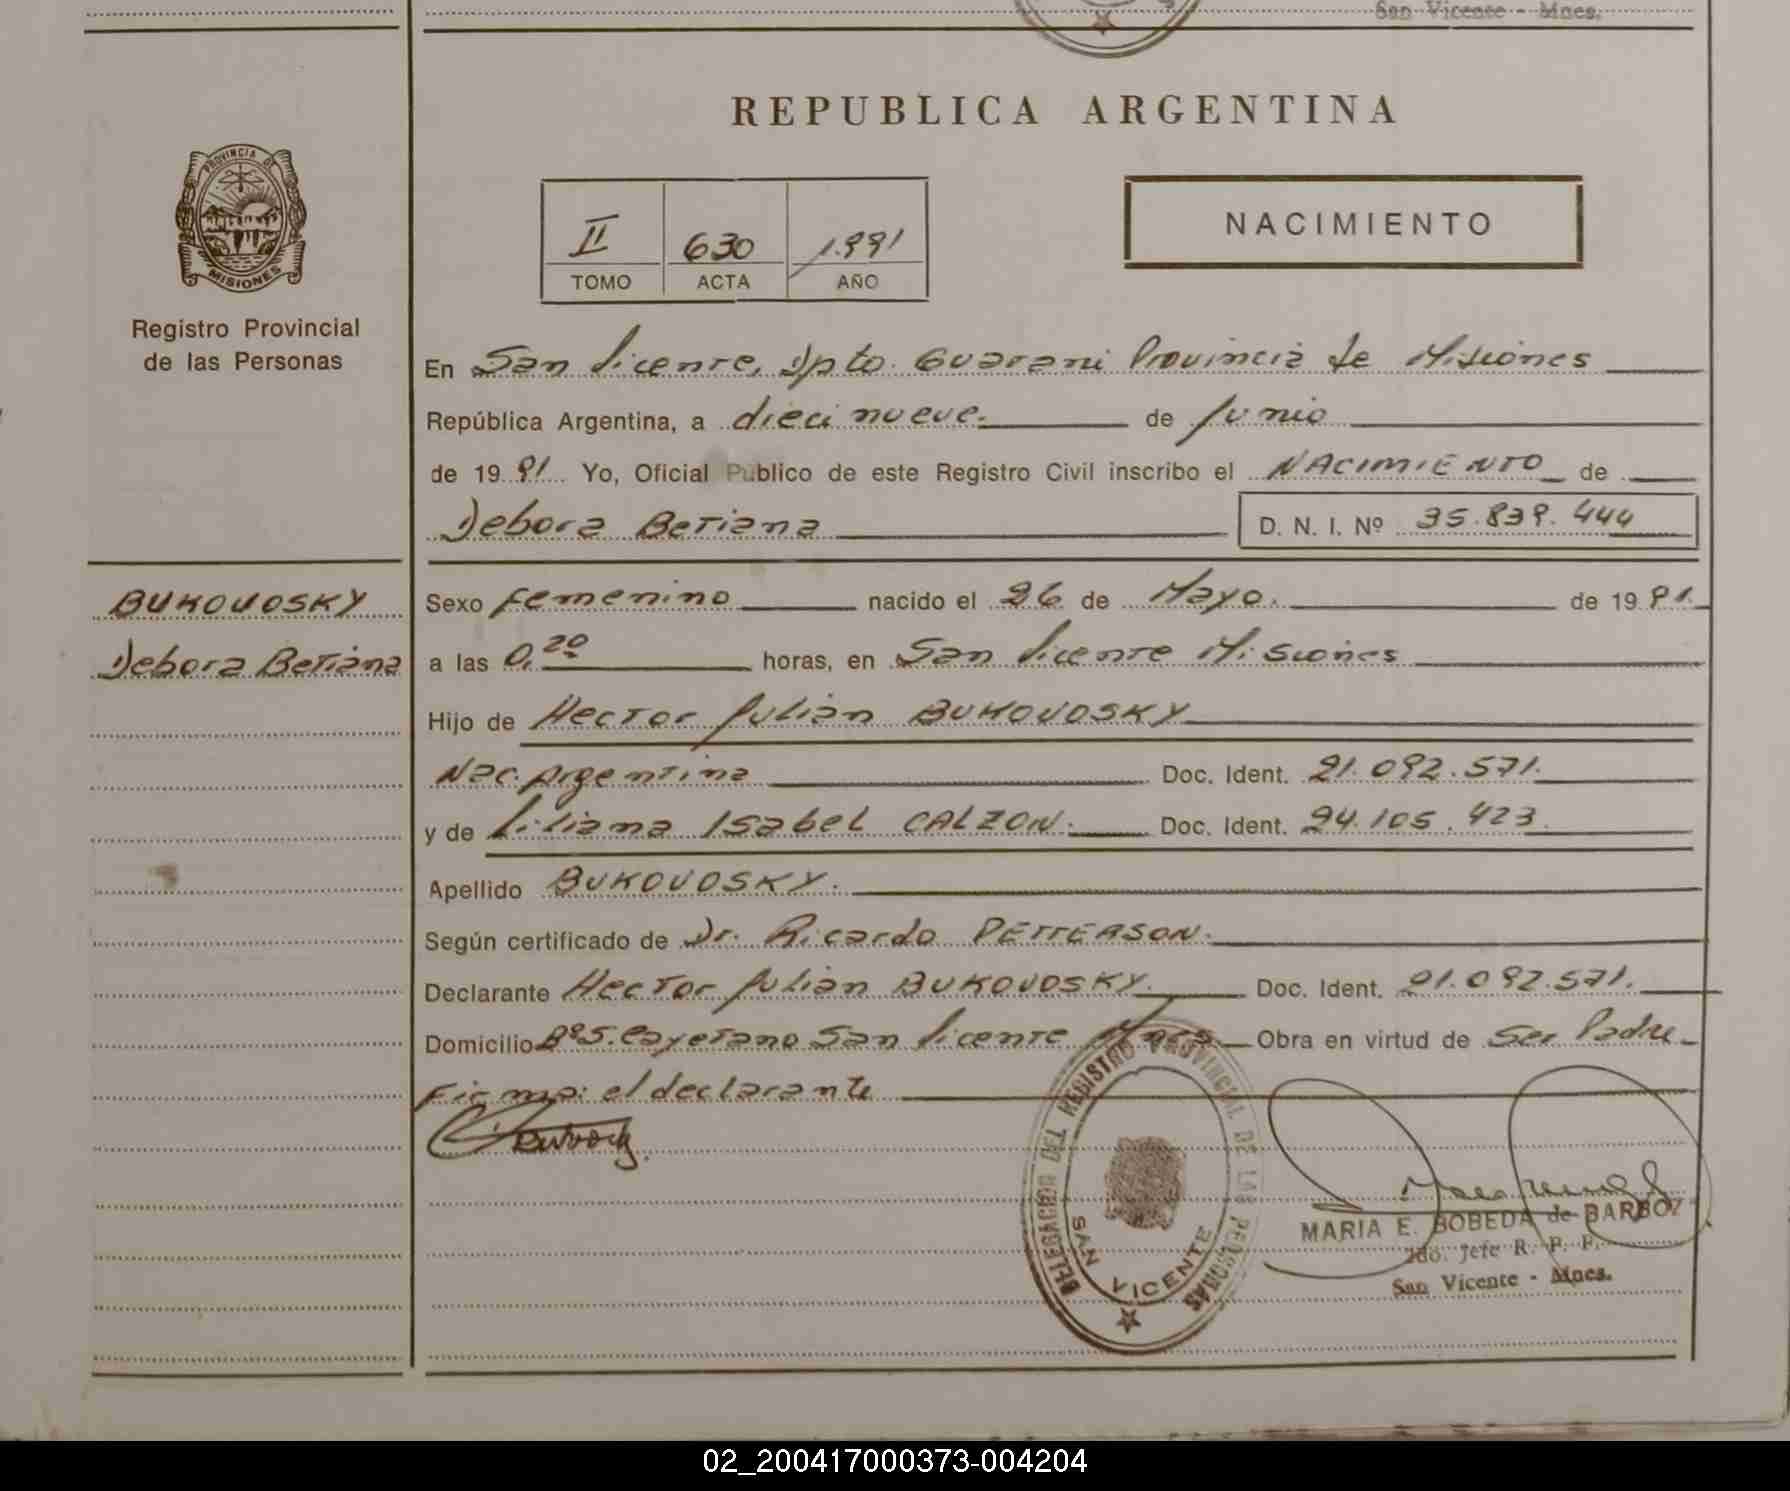 San Vicente - Mnes.
REPUBLICA ARGENTINA
PROVINCIA DE
MISIONES
Registro Provincial
de las Personas
II 630 1.991
TOMO ACTA AÑO
NACIMIENTO
En San Vicente, Dpto. Guarani Provincia de Misiones
República Argentina, a dieci nueve. de Junio
de 19 91 Yo, Oficial Publico de este Registro Civil inscribo el NACIMIENTO de
Debora Betiana D. N. I. Nº 35.839.444
BUKOVOSKY
Debora Betiana
Sexo femenino nacido el 26 de Mayo. de 19 91.
a las 0,20 horas, en San Vicente Misiones
Hijo de Hector Julian BUKOVOSKY
Nac. Argentina Doc. Ident. 21.092.571.
y de Liliana Isabel CALZON. Doc. Ident. 24.105.423.
Apellido BUKOVOSKY.
Según certificado de Dr. Ricardo PETTERSON.
Declarante Hector Julian BUKOVOSKY. Doc. Ident. 21.092.571.
Domicilio Bº S. Cayetano San Vicente Mnes. Obra en virtud de Ser Padre
Firma: el declarante
DELEGACION DEL REGISTRO PROVINCIAL DE LAS PERSONAS
SAN VICENTE
MARIA E. BOBEDA de BARBOZ
2do. Jefe R. P. P.
San Vicente - Mnes.
02_200417000373-004204